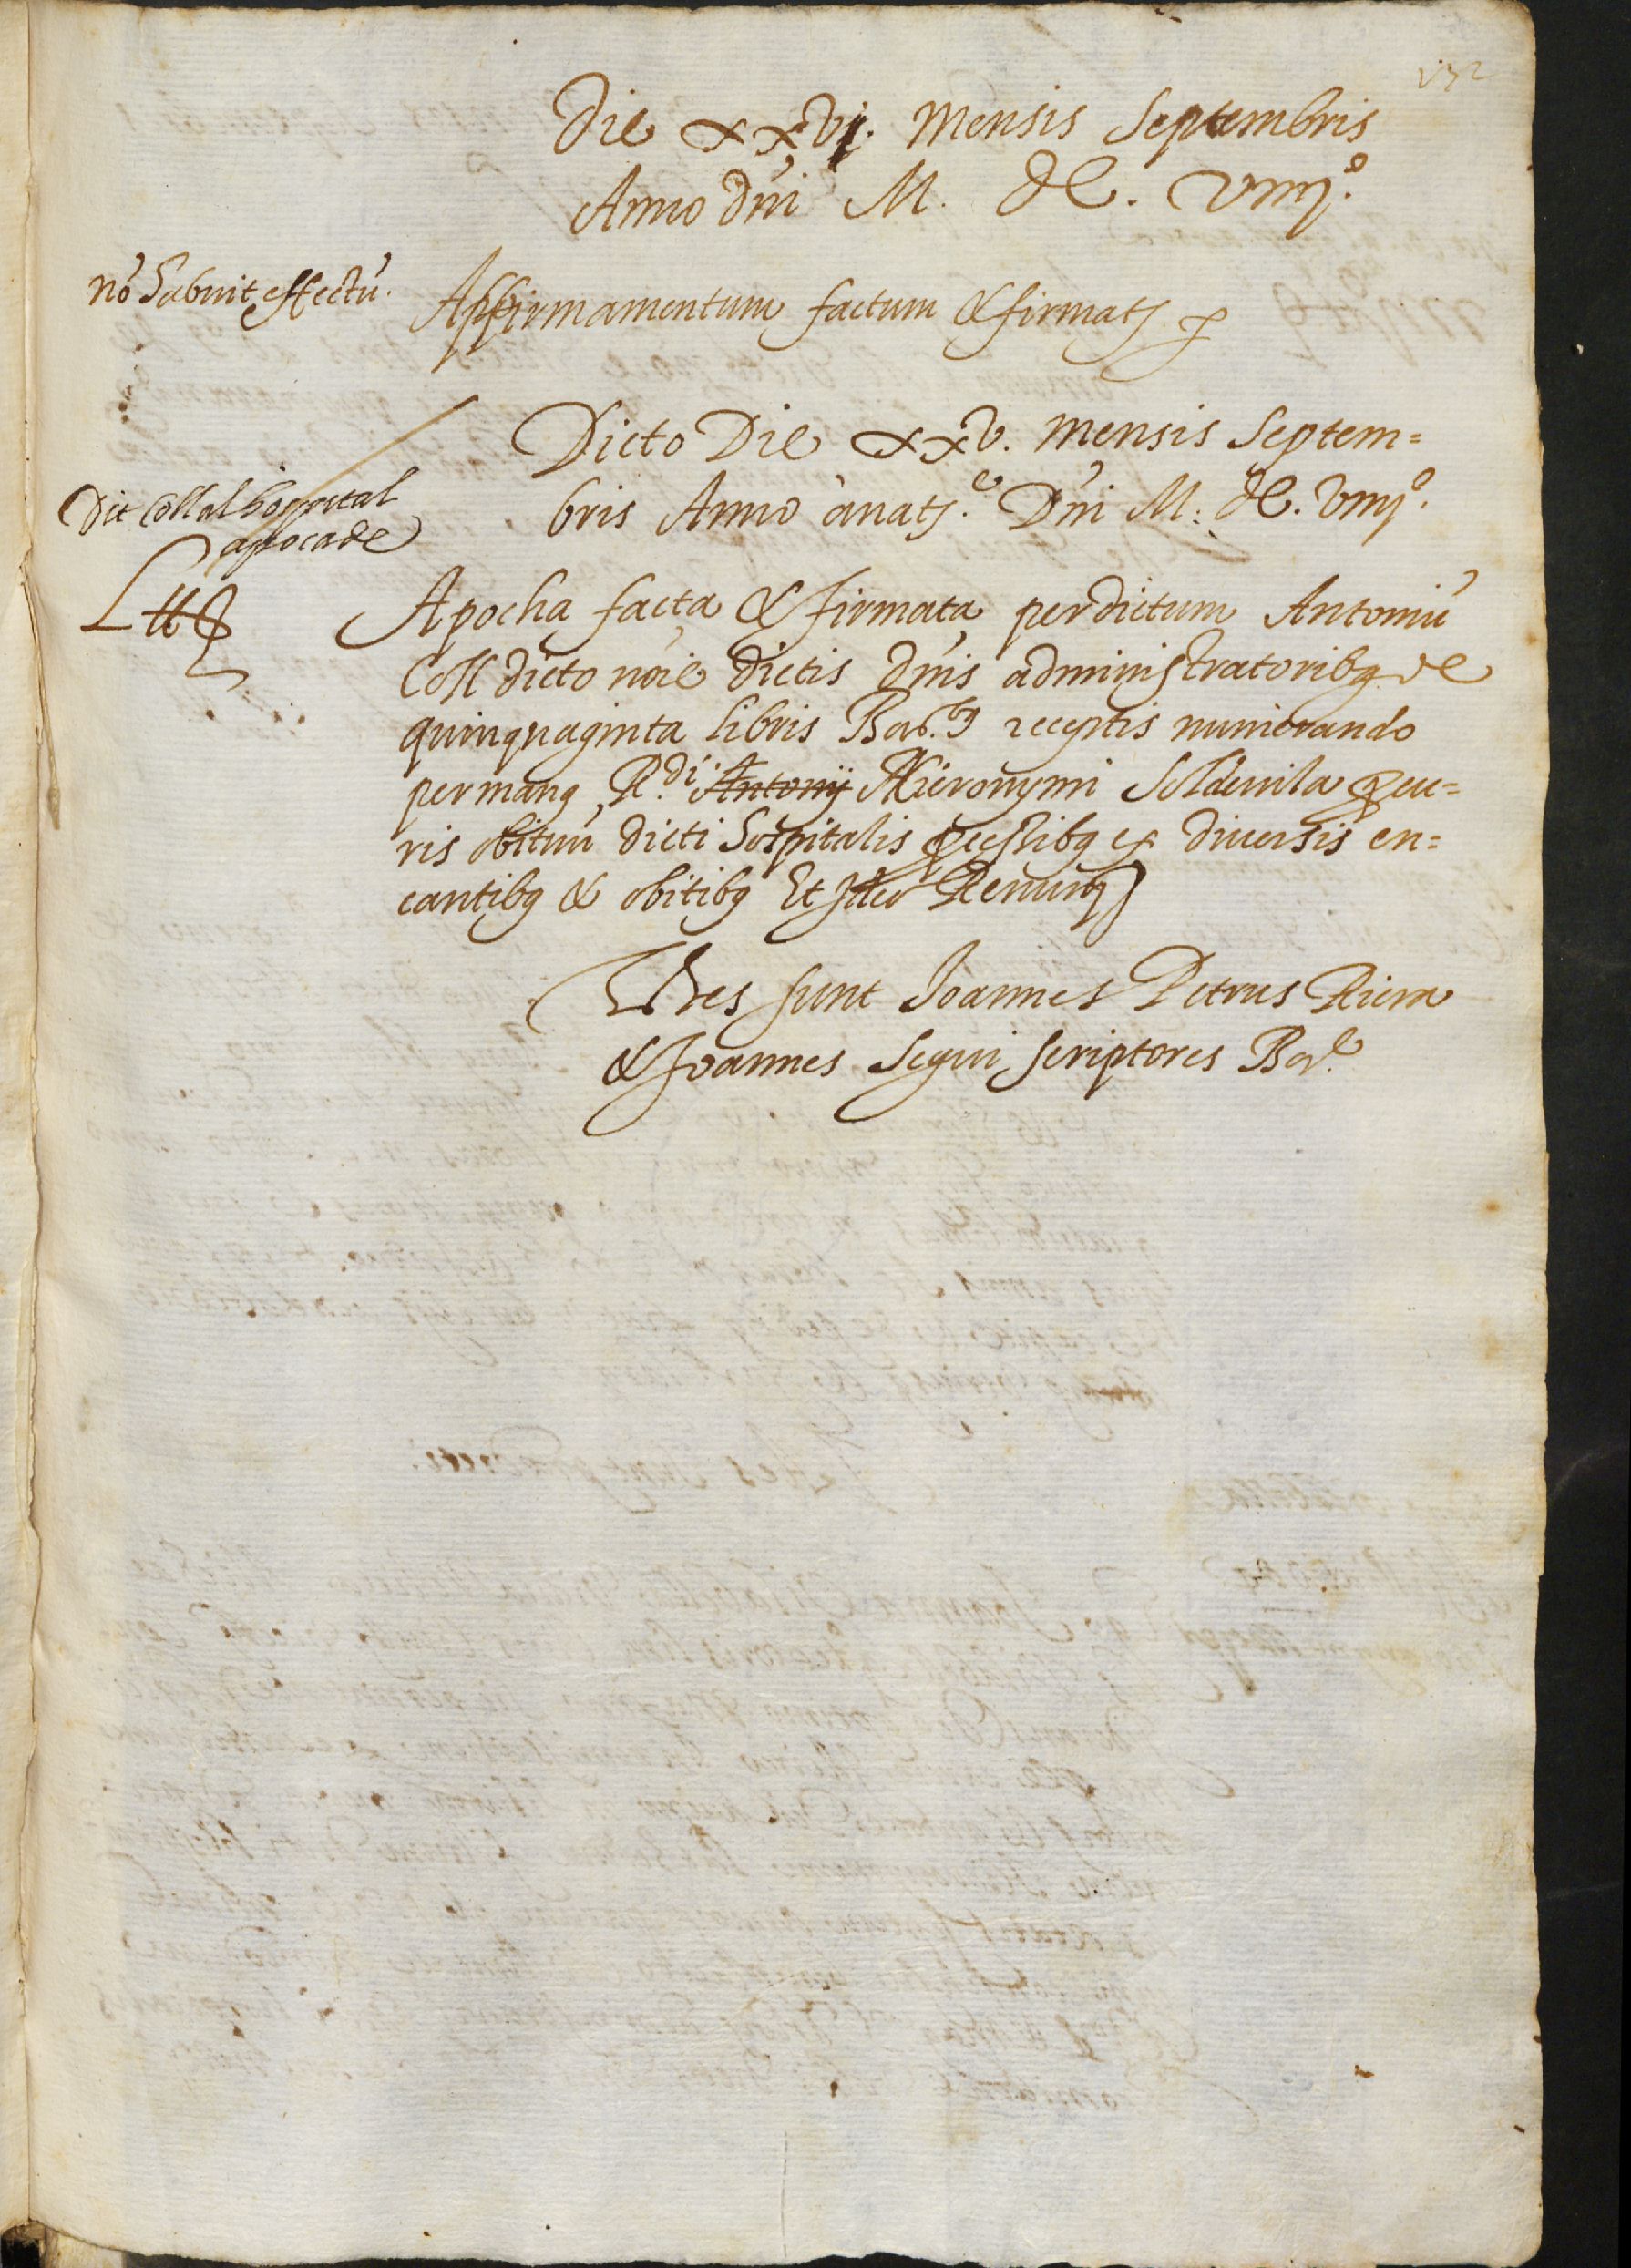 132
Die xxvj. Mensis Septembris
Anno Dñi M. DC. viiij.º
nõ habuit effectũ.
Affirmamentum factum & firmatȝ ꝑ
Dicto Die xxv. Mensis Septem=
bris Anno ànatȝ.e Dñi M. DC. viiijº.
Dit Coll al hospital
apocade
L lℓ
Apocha facta & firmata per dictum Antoniũ
Coll dicto nõie dictis dñis administratoribꝫ de
quinquaginta libris Bar.ꝫ receptis numerando
per manꝫ R.di Antonij Hieronymi Soldevila ꝓcu=
ris obituũ dicti Hospitalis ꝓcesibꝫ ex diuersis en=
cantibꝫ & obitibꝫ Et Ideo Renunꝫ
Testes sunt Joannes Petrus Riera
& Joannes Segui scriptores Bar.e